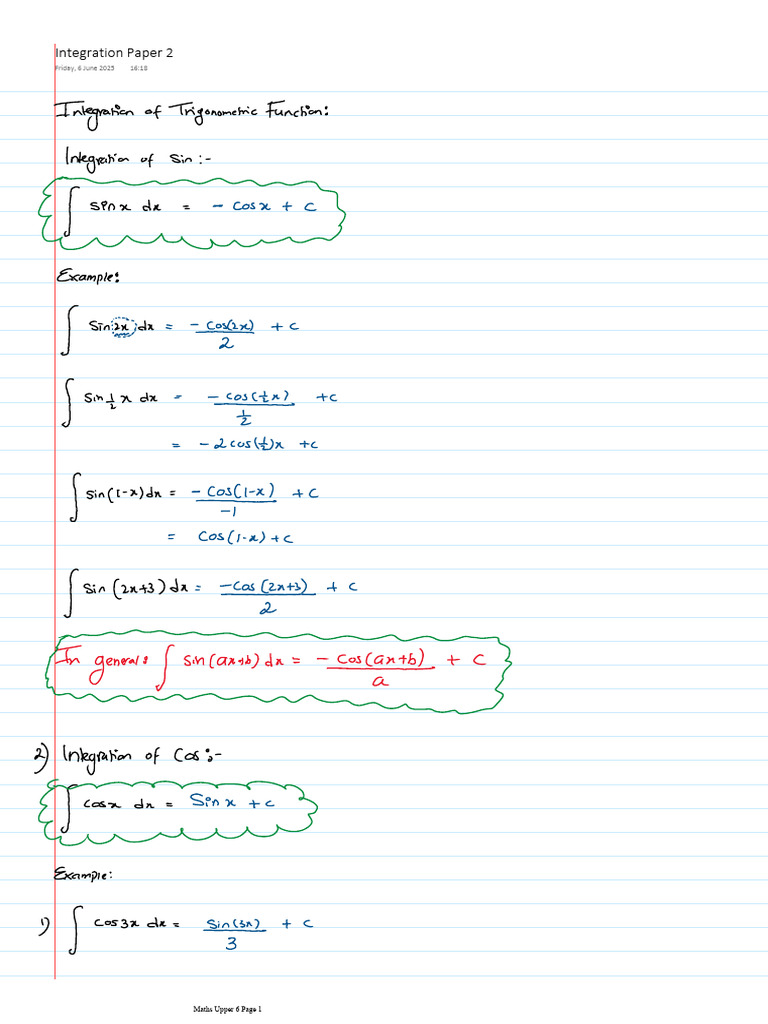 Integration Paper 2
Friday, 6 June 2025 16:18
Integration of Trigonometric Function:
Integration of Sin :-
∫ sin x dx = - cos x + c
Example:
∫ Sin 2x dx = -cos(2x)/2 + c
∫ Sin 1/2 x dx = -cos(1/2 x)/(1/2) + c
= -2 cos(1/2)x + c
∫ sin(1-x) dx = -cos(1-x)/-1 + c
= cos(1-x) + c
∫ sin (2x+3) dx = -cos(2x+3)/2 + c
In general: ∫ sin(ax+b) dx = -cos(ax+b)/a + c
2) Integration of Cos :-
∫ cos x dx = Sin x + c
Example:
1) ∫ cos 3x dx = sin(3x)/3 + c
Maths Upper 6 Page 1